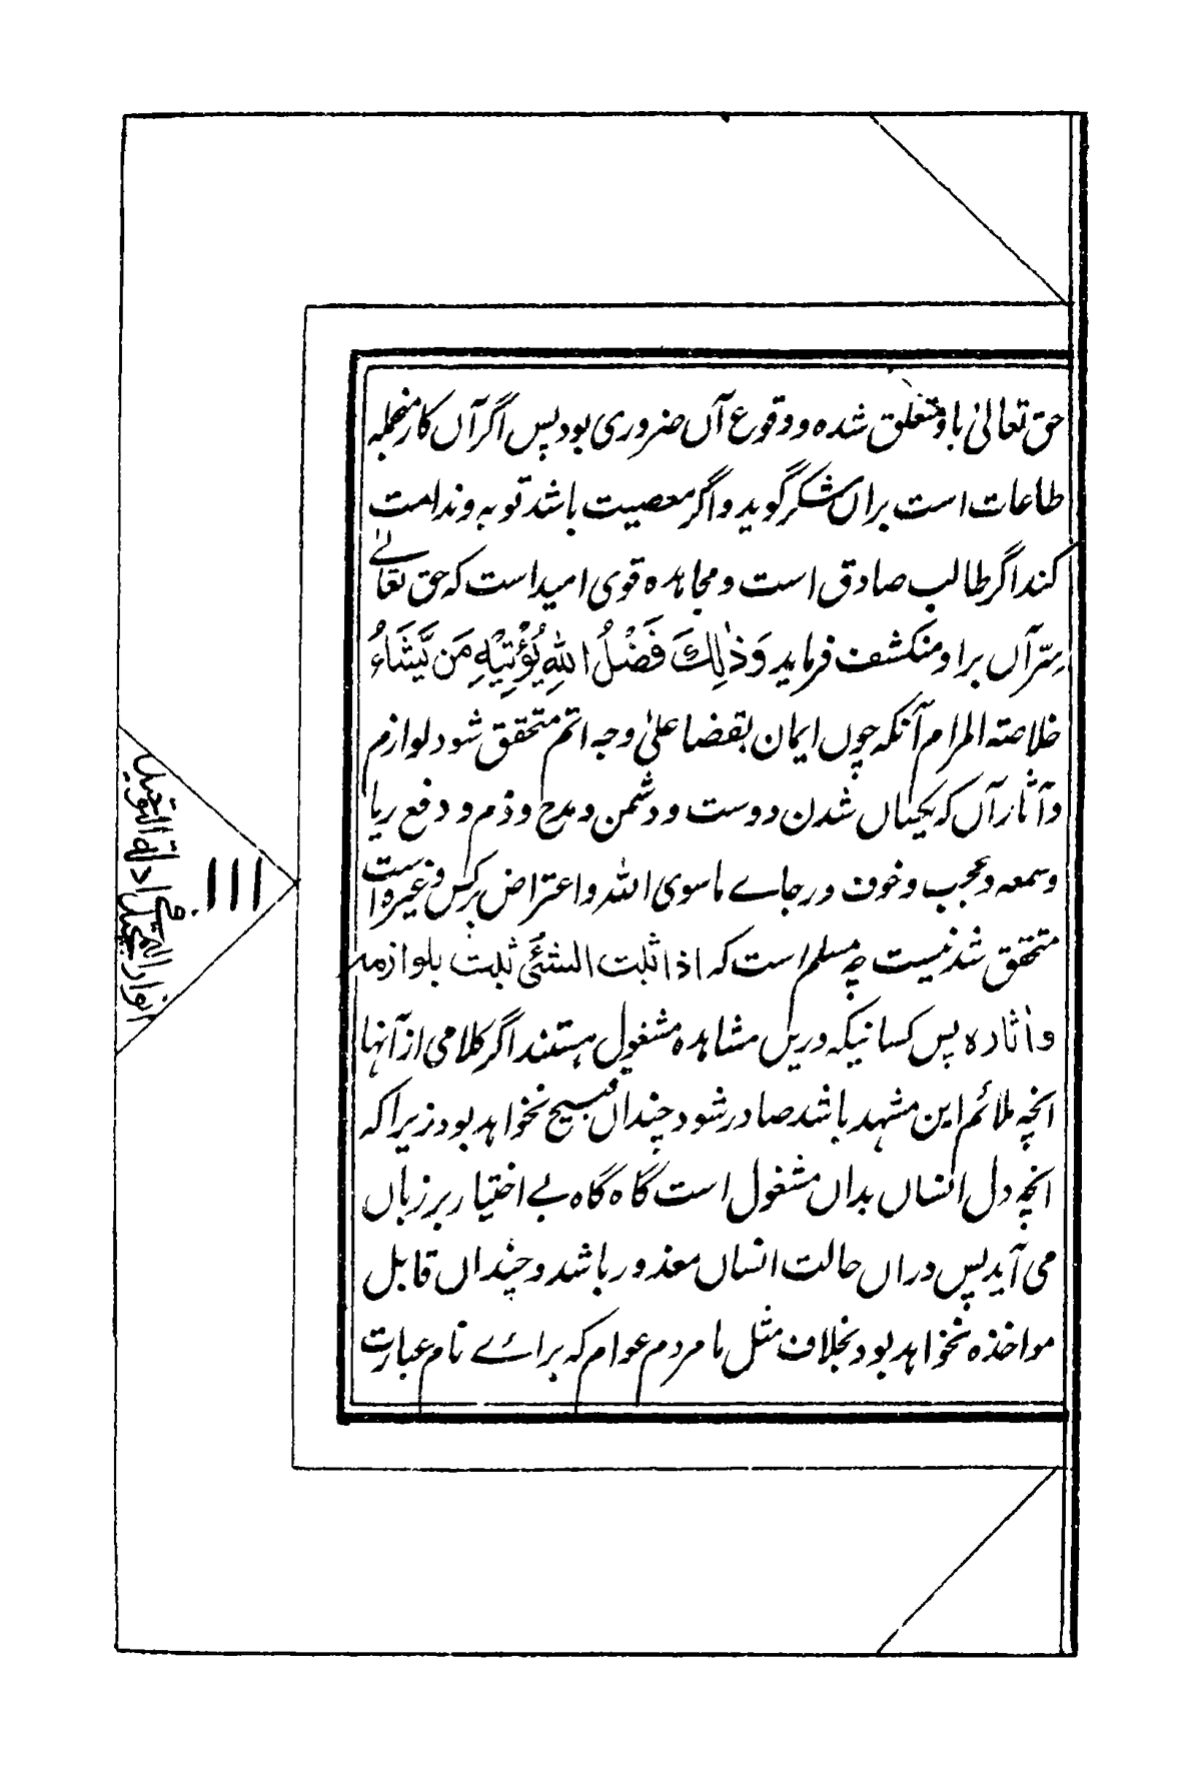 حق تعالیٰ باو متعلق شده و وقوع آں ضروری بود پس اگر آں کار منجملہ
طاعات است براں شکر گوید و اگر معصیت باشد توبہ و ندامت
کند اگر طالب صادق است و مجاہدہ قوی امید است کہ حق تعالےٰ
سِرّ آں برا و منکشف فرماید وَذٰلِكَ فَضْلُ اللهِ يُؤْتِيْهِ مَن يَّشَاءُ
خلاصتہ المرام آنکہ چوں ایمان بقضا علیٰ وجہ اتم متحقق شود لوازم
و آثار آں کہ یکساں شدن دوست و دشمن و مدح و ذم و دفع ریا
و سمعہ و عجب و خوف و رجاے ماسوی اللہ و اعتراض برکس و غیرہ است
متحقق شدنیست چہ مسلم است کہ اذا ثبت الشئی ثبت بلوازمہ
و اٰثارہ پس کسانیکہ دریں مشاہدہ مشغول ہستند اگر کلامی از آنہا
انچہ ملائم این مشہد باشد صادر شود چنداں قبیح نخواہد بود زیرا کہ
انچہ دل انساں بداں مشغول است گاہ گاہ بے اختیار بر زباں
می آید پس دراں حالت انساں معذور باشد و چنداں قابل
مواخذہ نخواہد بود بخلاف مثل ما مردم عوام کہ براۓ نام عبارت
۱۱۱